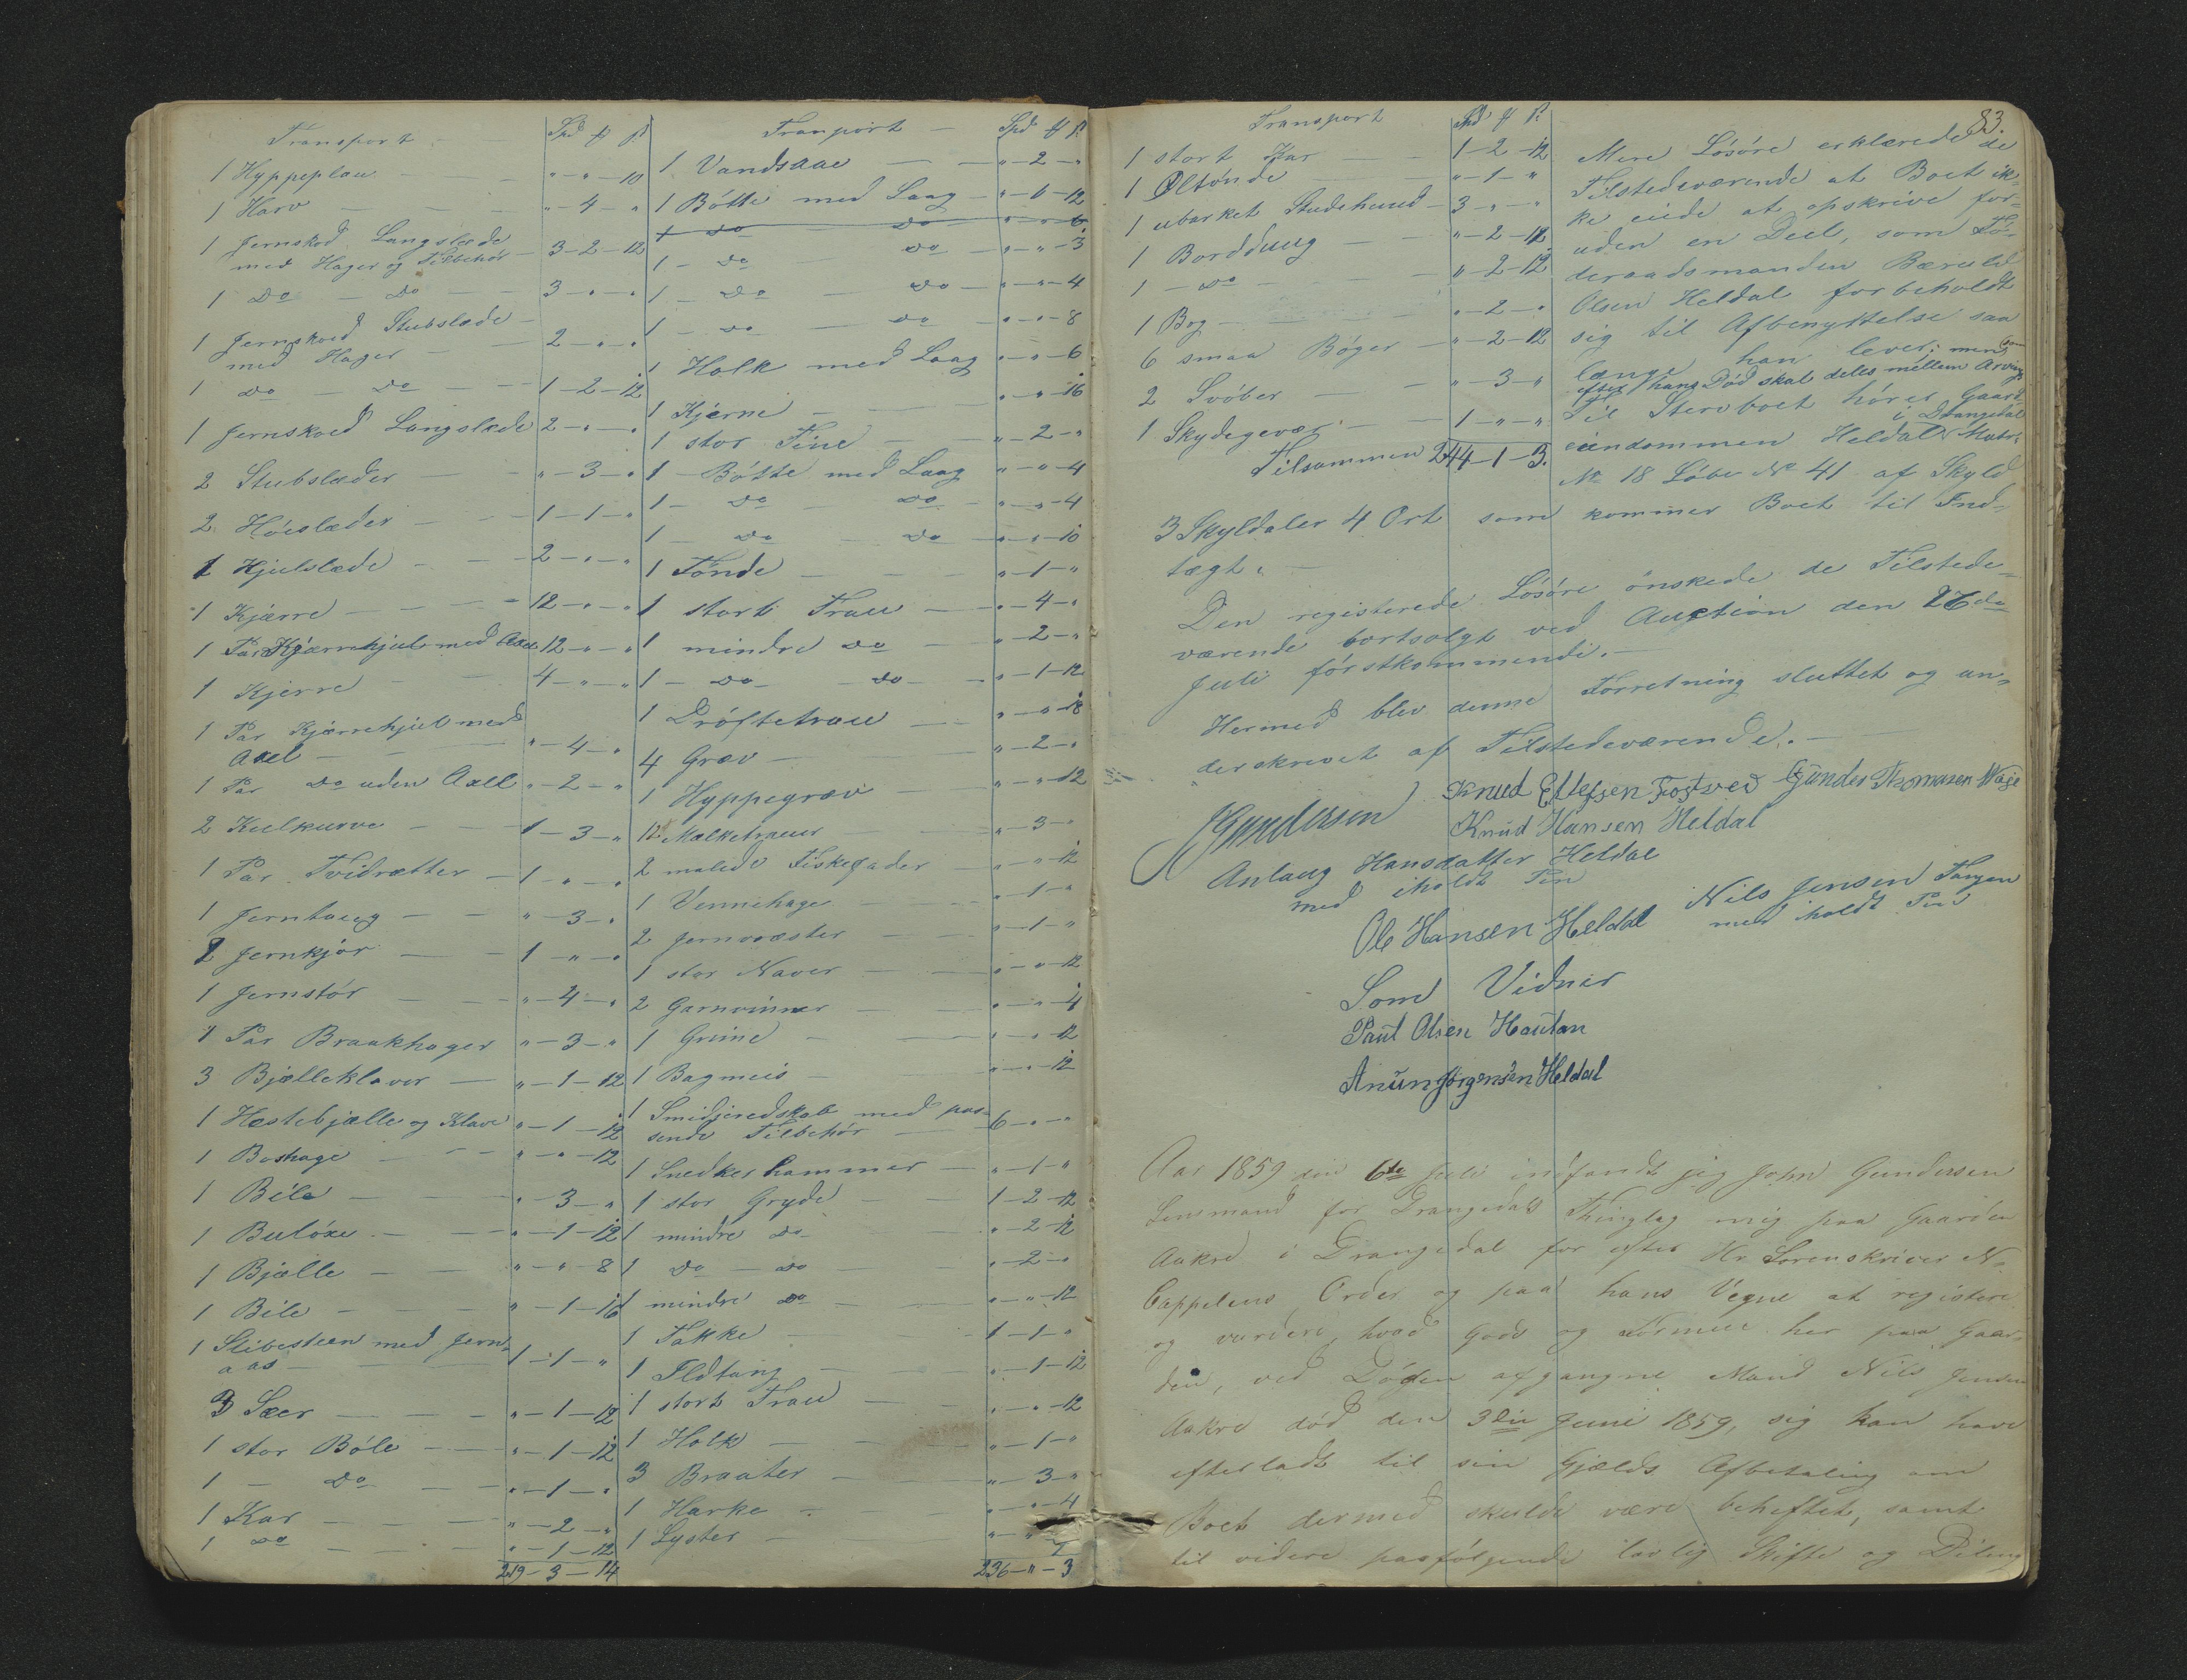 Transport Spd ß
1 Hyppeplau " - " - 10
1 Harv " - 4 - "
1 Jernskod Langslæde
med Hager og Tilbehör 3 - 2 - 12
1 Do - Do 3 - " - "
1 Jernskoed Stubslæde
med Hager 2 - " - "
1 Do Do 1 - 2 - 12
1 Jernskoed Langslæde 2 - " - "
2 Stubslæder " - 3 - "
2 Höislæder 1 - 1 - "
1 Hjulslæde 2 - " - "
1 Kjærre 12 - " - "
1 Par Kjærrehjul med Axel 12 - " - "
1 Kjerre 4 - " - "
1 Par Kjærrehjul med
Axel " - 4 - "
1 Par Do uden Axel " - 2 - "
2 Kulkurve 1 - 3 - "
1 Par Tvidrætter 1 - " - "
1 Jerntaug " - 3 - "
2 Jernkjør 1 - " - "
1 Jernstör " - 4 - "
1 Par Braakhager " - 3 - "
3 Bjælleklaver " - 1 - 12
1 Hestebjælle og Klave " - 1 - 12
1 Boshage " - " - 12
1 Bile " - 3 - "
1 Bulöxe " - 1 - 12
1 Bjælle " - " - 8
1 Bile " - 1 - 16
1 Slibesteen med Jern-
aas 1 - 1 - "
3 Sæer " - 1 - 12
1 stor Böle " - 1 - 12
1 - Do " - 1 - "
1 Kar " - 2 - "
1 Do " - 1 - 12
219 - 3 - 14
Tranport Spd ß
1 Vandsaae " - 2 - "
1 Bötte med Laag " - " - 12
1 Do Do " - " - 6
1 - Do Do " - " - 3
1 - Do Do " - " - 4
1 - Do Do " - " - 8
1 Holk med Laag " - " - 6
1 Kjerne " - " - 16
1 stor Tine " - 2 - "
1 - Bötte med Laag " - " - 4
1 - Do Do " - " - 4
1 - Do Do " - " - 10
1 Tönde " - 1 - "
1 stort Trau " - 4 - "
1 mindre Do " - 2 - "
1 - Do - Do " - 1 - 12
1 Dröftetrau " - " - 18
4 Græv " - 2 - "
1 Hyppegræv " - " - 12
12 Mælketrauer " - 3 - "
2 malede Fiskefader " - " - 12
1 Vennehage " - 1 - "
2 Jernvæster " - 1 - "
1 stor Naver " - " - 12
2 Garnvinner " - " - 4
1 Grime " - " - 12
1 Bagmeis " - " - 12
1 Smidjeredskab med pas-
sende Tilbehör 6 - " - "
1 Snedkerhammer " - 1 - "
1 stor Gryde 1 - 2 - 12
1 mindre Do " - 2 - 12
1 Do - Do " - 2 - "
1 mindre Do " - " - 12
1 Takke 1 - 1 - "
1 Ildtang " - 1 - 12
1 stort Trau " - " - 12
1 Holk " - 1 - "
3 Braater " - 3 - "
1 Harke " - " - 4
1 Lyster
236 - " - 3
83.
Transport Spd ß
1 stort Kar 1 - 2 - 12
1 Oltönde " - 1 - "
1 ubarket Studehuud 3 - " - "
1 Bordduug " - 2 - 12
1 - Do " - 2 - 12
1 Bog " - 2 - "
6 smaa Böger " - 2 - 12
2 Svöber " - 3 - "
1 Skydegevær 1 - " - "
Tilsammen 244 - 1 - 3.
Mere Lösöre erklærede de
Tilstedeværende at Boet ik-
ke eiede at opskrive for-
uden en Deel, som Fö-
deraadsmanden Bærulf
Olsen Heldal forbeholdt
sig til Afbenyttelse saa
længe han lever; men som
efter hans Död skal deles mellem Arvinge
Til Stervboet hörer Gaard-
eiendommen Heldal i Drangedal Matr.
No 18 Löbe No 41 af Skyld
3 Skyldaler 4 Ort som kommer Boet til Ind-
tægt.
Den registerede Lösöre önskede de Tilstede-
værende bortsolgt ved Auction den 26de
Juli förstkommende.
Hermed blev denne Forretning sluttet og un-
derskrevet af Tilstedeværende.
JGundersen Knud Ellefsen Tostved Gunder Thomasen Wøje
Knud Hansen Heldal
Anlaug Hansdatter Heldal
med iholdt Pen
Nils Jensen Tangen
med iholdt Pen
Ole Hansen Heldal
Som Vidner
Paul Olsen Houtan
Anün Jörgensen Heldal
Aar 1859 den 6te Juli indfandt jeg John Gundersen
Lensmand for Drangedals Thinglag mig paa Gaarden
Aakre i Drangedal for efter Hr. Sorenskriver N.
Cappelens Order og paa hans Vegne at registere
og vurdere, hvad Gods og Formue her paa Gaar-
den, ved Döden afgangne Mand Nils Jensen
Aakre död den 3die Juni 1859, sig kan have
efterladt til sin Gjælds Afbetaling om
Boet dermed skulde være beheftet, samt
til videre paafölgende lovlig Skifte og Deling